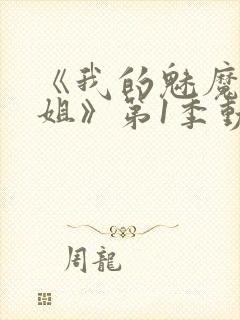 《我的魅魔
姐》第1季動
周龍